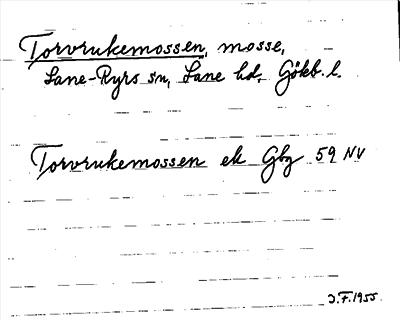 Torvrukemossen, mosse,
Lane-Ryrs sn, Lane hd, Gökb. l.
Torvrukemossen ek Gbg 59 NV
J.F. 1955.